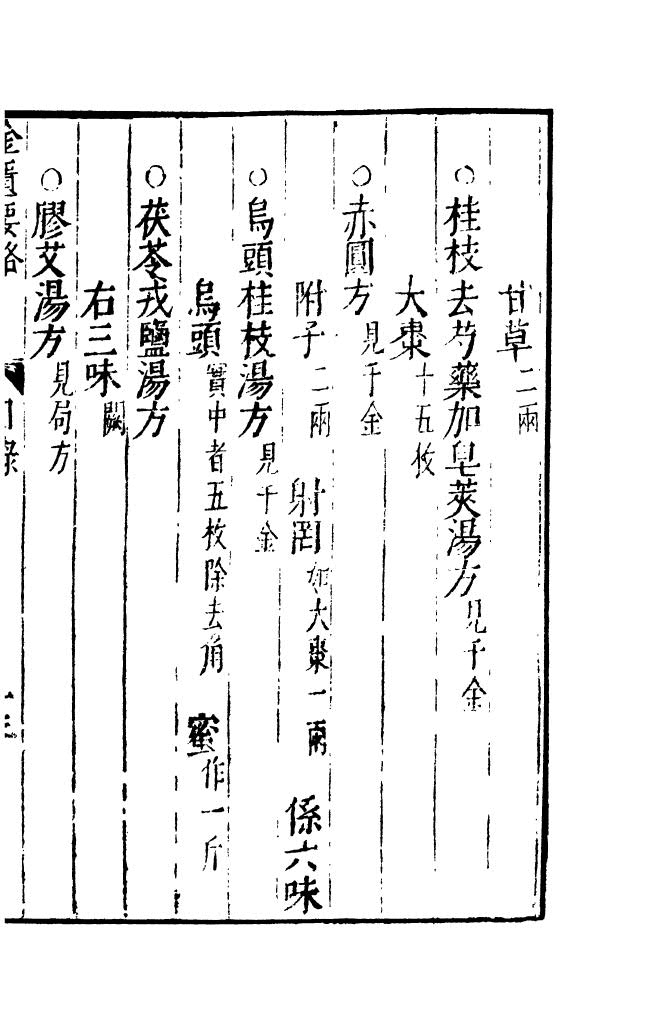 甘草二兩
○桂枝去芍藥加皂莢湯方見千金
大棗十五枚
○赤圓方見千金
附子二兩 射罔如大棗一兩 係六味
○烏頭桂枝湯方見千金
烏頭實中者五枚除去角 蜜作一斤
○茯苓戎鹽湯方
右三味闕
○膠艾湯方見局方
金匱要略 目錄